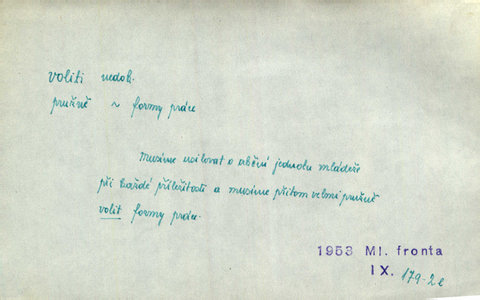 voliti nedok.
pružně ~ formy práce
Musíme usilovat o vítění jednotu mládeže
při každé příležitosti a musíme přitom velmi pružně
volit formy práce.
1953 Ml. fronta
IX. 179-2e